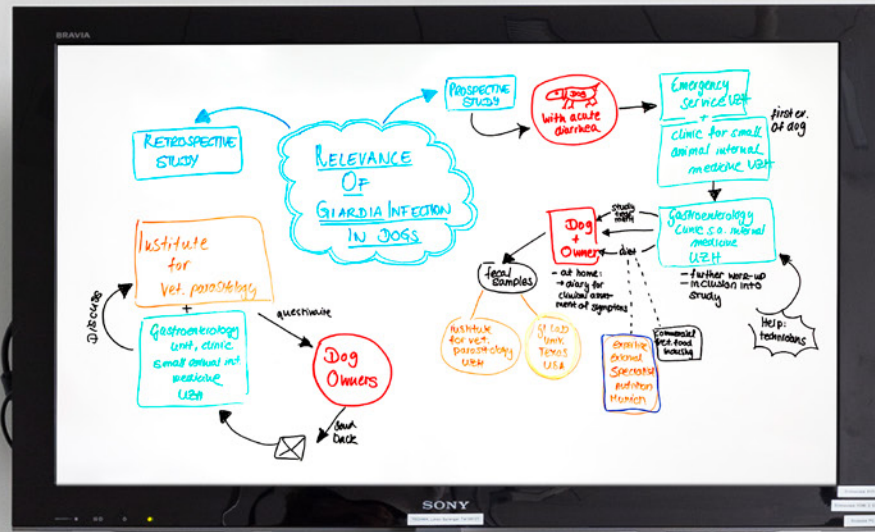 BRAVIA
RETROSPECTIVE
STUDY
RELEVANCE
OF
GIARDIA INFECTION
IN DOGS
PROSPECTIVE
STUDY
DOG
with acute
diarrhea
Emergency
service UZH
+
clinic for small
animal internal
medicine UZH
first ex.
of dog
Gastroenterology
Clinic s.a. internal
medicine
UZH
– further work-up
– inclusion into
study
Help:
technicians
study
diet
Dog
+
Owner
– at home:
→ diary for
clinical
ment of symptoms
fecal
samples
Institute
for vet.
parasitology
UZH
GI Lab
unit,
Texas
USA
external
Specialist
nutrition
Munich
commercial
vet. food
industry
Institute
for
vet. parasitology
+
Gastroenterology
unit, clinic
small animal int.
medicine
UZH
DISCUSS
questionaire
Dog
Owners
send
back
SONY